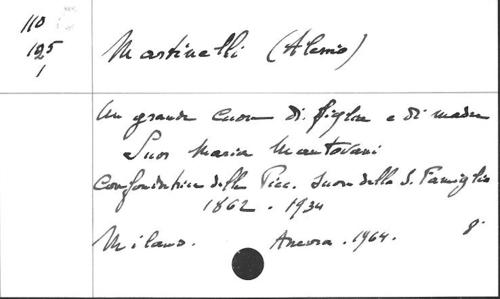 110
125
1
Martinelli (Alessio)
Un grande cuore di figlia e di madre
Suor Maria Mantovani
Confondatrice delle Picc. Suore della S. Famiglia
1862 - 1934
Milano. Ancora. 1964. 8°